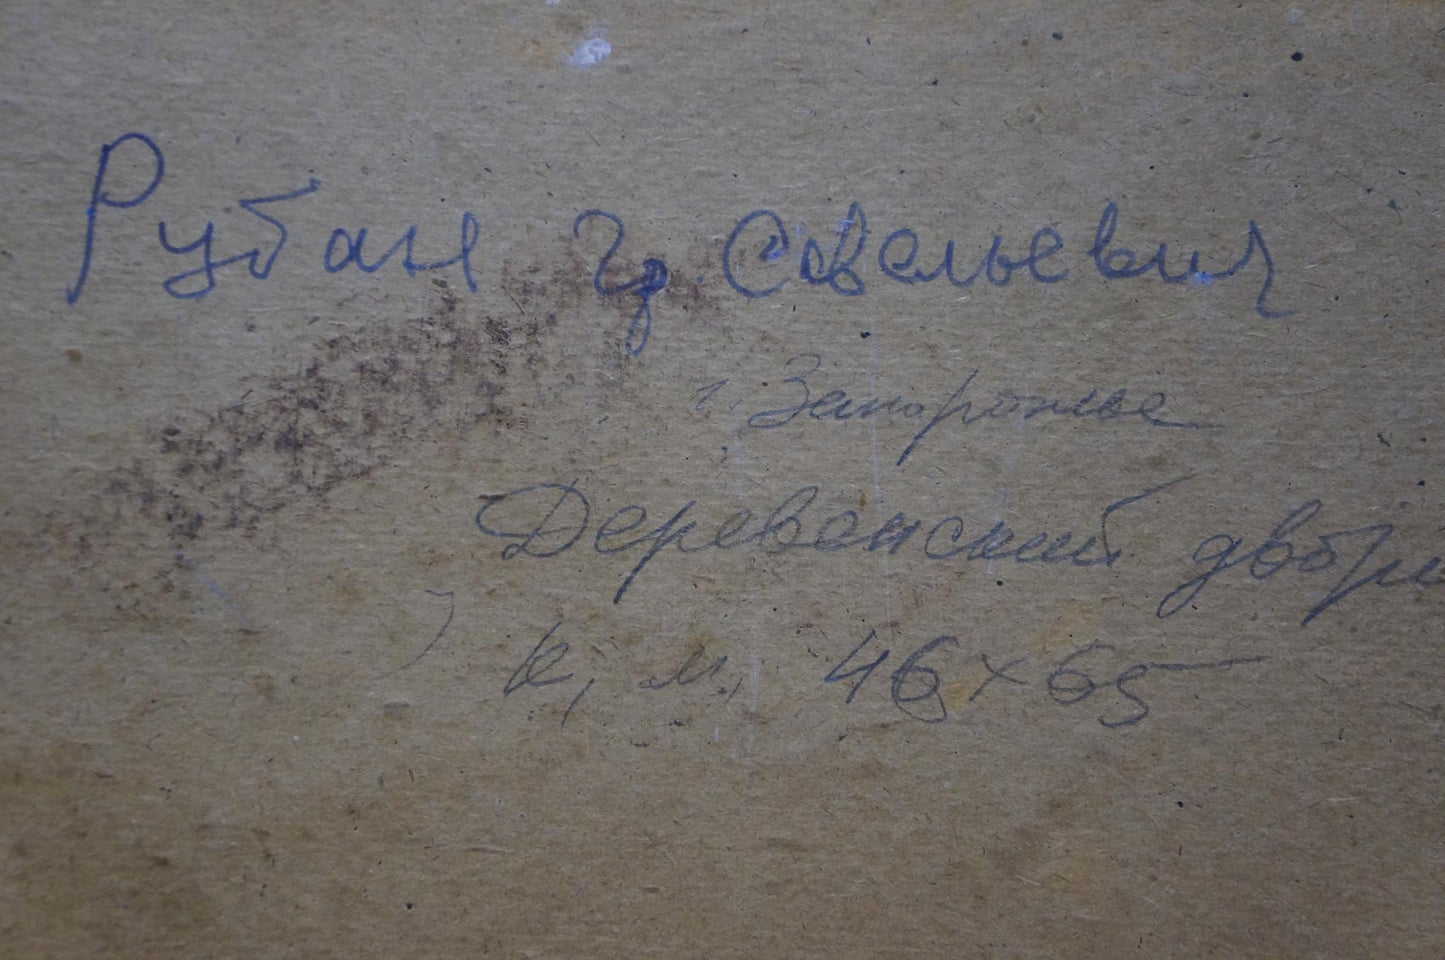 Рубан Гр. Савельевич
г. Запорожье
Деревенский дворик
к, м. 46×65